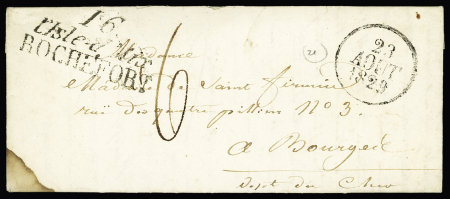 16
L'Isle-d'Aix
ROCHEFORT
23
AOUT
1829
21
6
Madame
Madame de Saint firmin
rue des quatre pilliers N° 3.
a Bourges
Dept du Cher